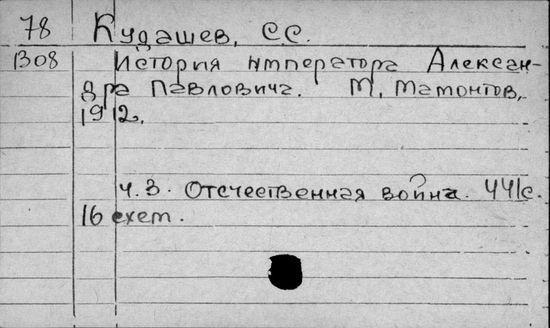 78 Кудашев, С.С.
1308 История императора Алексан-
дра Павловича. М, Мамонтов,
1912.
ч. 3. Отечественная война. 441с.
16 схем.